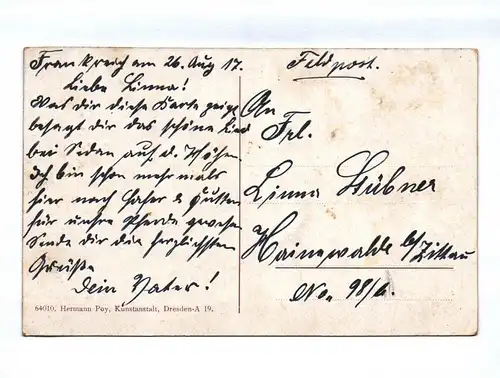 Frankreich am 26. Aug 17.
Liebe Linna!
Was dir diese Karte zeigt
besagt dir das schöne Lied
bei Sedan auf d. Höhen
Ich bin schon mehrmals
hier nach Hafer & Futter
für unsre Pferde gewesen
Sende dir die herzlichsten
Grüße
Dein Vater!
64010, Hermann Poy, Kunstanstalt, Dresden-A 19.
Feldpost.
An
Frl.
Linna Hübner
Hainewalde b/Zittau
No.